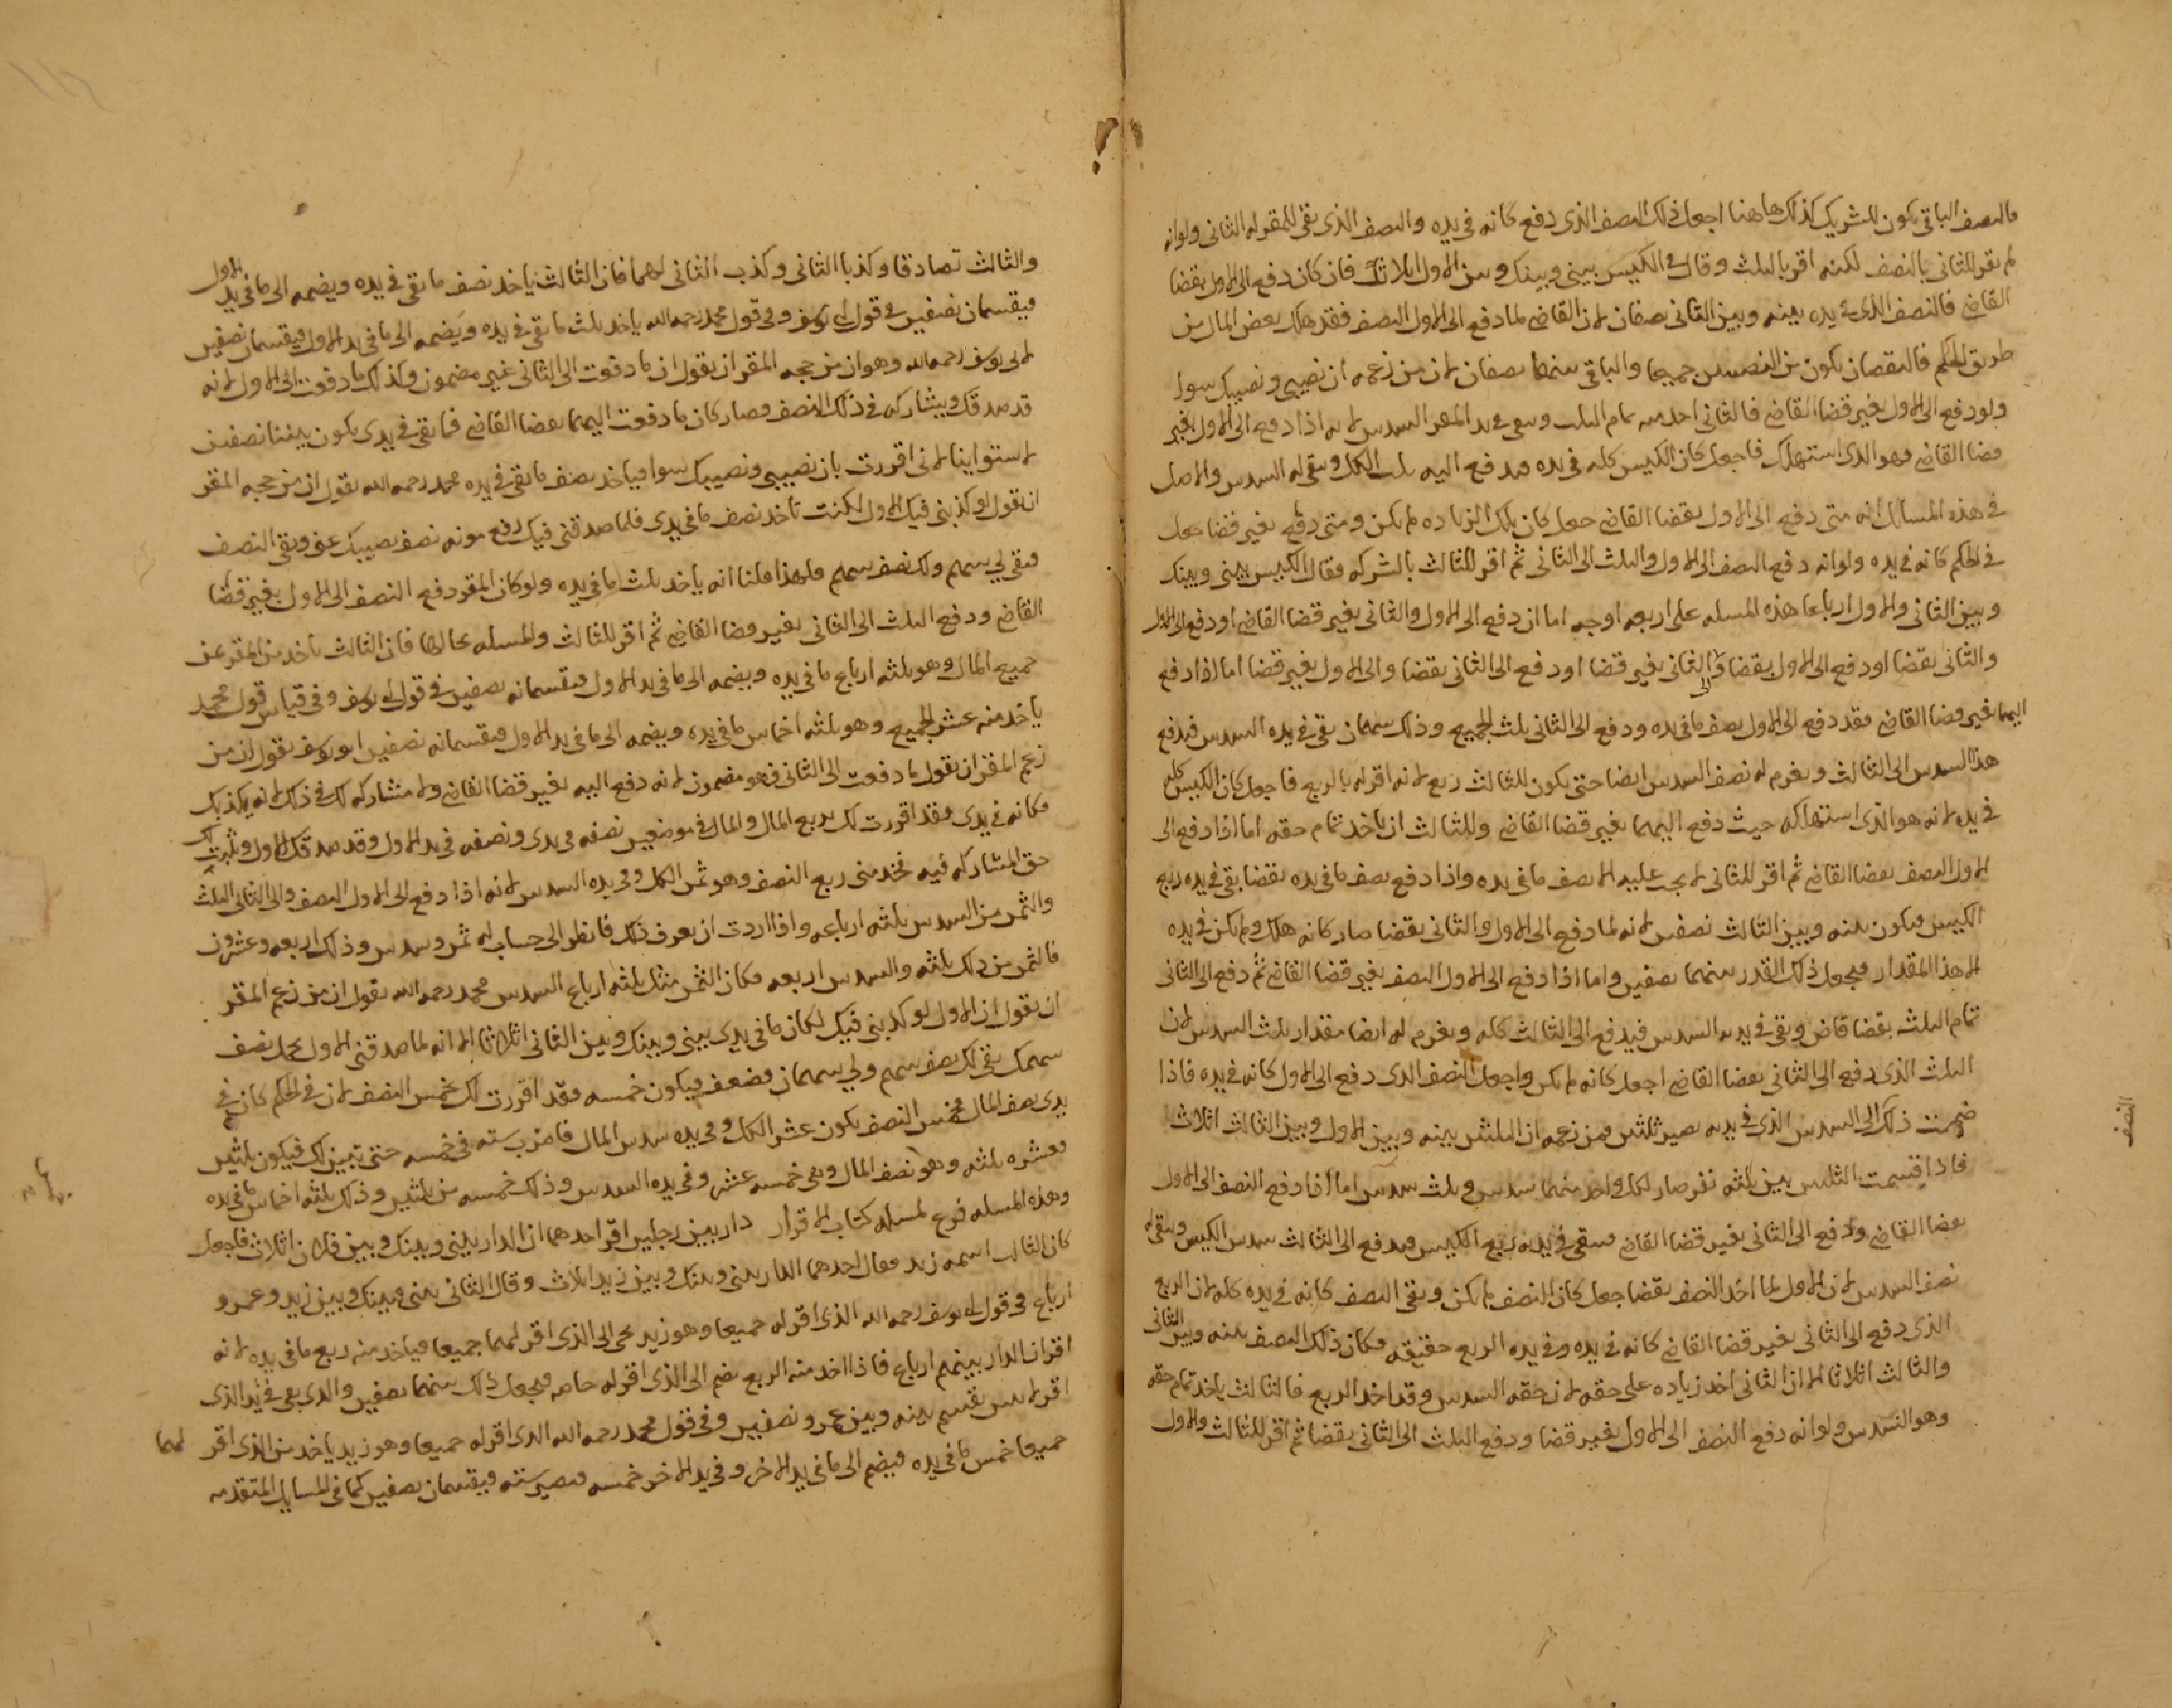 فالنصف الباقي يكون للشريك كذلك هاهنا اجعل ذلك النصف الذي دفع كانه في يده والنصف الذي بقي للمقر له الثاني ولو انه
لم يقر للثاني بالنصف لكنه اقر بالثلث وقال في الكيس بيني وبينك وبين الاول اثلاثا فان كان دفع الى الاول بقضا
القاضي فالنصف الذي في يده بينه وبين الثاني نصفان لان القاضي لما دفع الى الاول النصف فقد هلك بعض المال من
طريق الحكم فالنقصان يكون من النصيبين جميعا والباقي بينهما نصفان لان من زعمه ان نصيبي ونصيبك سوا
ولو دفع الى الاول بغير قضا القاضي فالثاني اخذ منه تمام الثلث وبقي في يد المقر السدس لانه اذا دفع الى الاول بغير
قضا القاضي فهو الذي استهلك فاجعل كان الكيس كله في يده فدفع اليه ثلث الكل وبقي له السدس والاصل
في هذه المسايل انه متى دفع الى الاول بقضا القاضي جعل كان تلك الزياده لم يكن ومتى دفع بغير قضا جعل
في الحكم كانه في يده ولو انه دفع النصف الى الاول والثلث الى الثاني ثم اقر للثالث بالشركه فقال الكيس بيني وبينك
وبين الثاني والاول ارباعا هذه المسله على اربعه اوجه اما ان دفع الى الاول والثاني بغير قضا القاضي او دفع الى الاول
والثاني بقضا او دفع الى الاول بقضا والى الثاني بغير قضا او دفع الى الثاني بقضا والى الاول بغير قضا اما اذا دفع
اليهما بغير قضا القاضي فقد دفع الى الاول نصف ما في يده ودفع الى الثاني ثلث الجميع وذلك سهمان بقي في يده السدس فيدفع
هذا السدس الى الثالث ويغرم له نصف السدس ايضا حتى يكون للثالث ربع لانه اقر له بالربع فاجعل كان الكيس كله
في يده لانه هو الذي استهلكه حيث دفع اليهما بغير قضا القاضي وللثالث ان ياخذ تمام حقه اما اذا دفع الى
الاول النصف بقضا القاضي ثم اقر للثاني لا يجب عليه الا نصف ما في يده واذا دفع نصف ما في يده بقضا بقي في يده ربع
الكيس فيكون بينه وبين الثالث نصفين لانه لما دفع الى الاول والثاني بقضا صار كانه هلك ولم يكن في يده
الا هذا المقدار فيجعل ذلك القدر بينهما نصفين واما اذا دفع الى الاول النصف بغير قضا القاضي ثم دفع الى الثاني
تمام الثلث بقضا قاض وبقي في يده السدس فيدفع الى الثالث كله ويغرم له ايضا مقدار ثلث السدس لان
الثلث الذي دفع الى الثاني بقضا القاضي اجعل كانه لم يكن واجعل النصف الذي دفع الى الاول كانه في يده فاذا
ضممت ذلك الى السدس الذي في يده يصير ثلثين فمن زعمه ان الثلثين بينه وبين الاول وبين الثالث اثلاث
فاذا قسمت الثلثين بين ثلثه نفر صار لكل واحد منهما سدس وثلث سدس اما اذا دفع النصف الى الاول
بقضا القاضي ودفع الى الثاني بغير قضا القاضي فبقي في يده ربع الكيس فيدفع الى الثالث سدس الكيس وبقي له
نصف السدس لان الاول لما اخذ النصف بقضا جعل كان النصف لم يكن وبقي النصف كانه في يده كله لان الربع
الذي دفع الى الثاني بغير قضا القاضي كانه في يده وفي يده الربع حقيقه فكان ذلك النصف بينه وبين الثاني
والثالث اثلاثا الا ان الثاني اخذ زياده على حقه لان حقه السدس وقد اخذ الربع فالثالث ياخذ تمام حقه
وهو السدس ولو انه دفع النصف الى الاول بغير قضا ودفع الثلث الى الثاني بقضا ثم اقر للثالث والاول
النصف
والثالث تصادقا وكذبا الثاني وكذب الثاني لهما فان الثالث ياخذ نصف ما بقي في يده ويضمه الى ما في يد الاول
فيقسمان نصفين في قول ابي يوسف وفي قول محمد رحمه الله ياخذ ثلث ما بقي في يده ويضمه الى ما في يد الاول فيقتسمان نصفين
لابي يوسف رحمه الله وهو ان من حجه المقر ان يقول ان ما دفعت الى الثاني غير مضمون وكذلك ما دفعت الى الاول لانه
قد صدقك ويشاركه في ذلك النصف فصار كان ما دفعت اليهما بقضا القاضي فما بقي في يدي يكون بيننا نصفين
لاستوائنا لاني اقررت بان نصيبي ونصيبك سوا فياخذ نصف ما بقي في يده محمد رحمه الله يقول ان من حجه المقر
ان يقول لو كذبني فيك الاول لكنت تاخذ نصف ما في يدي فلما صدقني فيك رفع مونه نصف نصيبك عني وبقي النصف
فبقي لي سهم ولك نصف سهم فلهذا قلنا انه ياخذ ثلث ما في يده ولو كان المقر دفع النصف الى الاول بغير قضا
القاضي ودفع الثلث الى الثاني بغير قضا القاضي ثم اقر للثالث والمسله بحالها فان الثالث ياخذ من المقر ثمن
جميع المال وهو ثلثه ارباع ما في يده ويضمه الى ما في يد الاول فيقسمانه نصفين في قول ابي يوسف وفي قياس قول محمد
ياخذ منه عشر الجميع وهو ثلثه اخماس ما في يده ويضمه الى ما في يد الاول فيقسمانه نصفين ابو يوسف يقول ان من
زعم المقر ان يقول ما دفعت الى الثاني فهو مضمون لانه دفع اليه بغير قضا القاضي ولا مشاركه لك في ذلك لانه يكذبك
فكانه في يدي فقد اقررت لك بربع المال والمال في موضعين نصفه في يدي ونصفه في يد الاول وقد صدقك الاول ويثبت لك
حق المشاركه فيه فخذ مني ربع النصف وهو ثمن الكل وفي يده السدس لانه اذا دفع الى الاول النصف والى الثاني الثلث
والثمن من السدس ثلثه ارباعه واذا اردت ان يعرف ذلك فانظر الى حساب له ثمن وسدس وذلك اربعه وعشرون
فالثمن من ذلك ثلثه والسدس اربعه فكان الثمن مثل ثلثه ارباع السدس محمد رحمه الله يقول ان من زعم المقر
ان يقول ان الاول لو كذبني فيك لكان ما في يدي بيني وبينك وبين الثاني اثلاثا الا انه لما صدقني الاول تحمل نصف
سهمك بقي لك نصف سهم ولي سهمان فضعف فيكون خمسه فقد اقررت لك بخمس النصف لان في الحكم كان في
يدي نصف المال فخمس النصف يكون عشر الكل وفي يده سدس المال فاضرب سته في خمسه حتى تبين لك فيكون ثلثين
فعشره ثلثه وهو نصف المال وهي خمسه عشر وفي يده السدس وذلك خمسه من ثلثين وذلك ثلثه اخماس ما في يده
وهذه المسله فرع لمسله كتاب الاقرار دار بين رجلين اقر احدهما ان الدار بيني وبينك وبين فلان اثلاث فاجعل
كان الثالث اسمه زيد فقال احدهما الدار بيني وبينك وبين زيد اثلاث وقال الثاني بيني وبينك وبين زيد وعمرو
ارباع في قول ابي يوسف رحمه الله الذي اقر له جميعا وهو زيد يجي الى الذي اقر لهما جميعا فياخذ منه ربع ما في يده لانه
اقر ان الدار بينهم ارباع فاذا اخذ منه الربع يضم الى الذي اقر له خاصه فيجعل ذلك بينهما نصفين والذي بقي في يد الذي
اقر لاثنين يقسم بينه وبين عمرو نصفين وفي قول محمد رحمه الله الذي اقر له جميعا وهو زيد ياخذ من الذي اقر لهما
جميعا خمس ما في يده فيضم الى ما في يد الاخر وفي يد الاخر خمسه فيصير سته فيقتسمان نصفين كما في المسايل المتقدمه